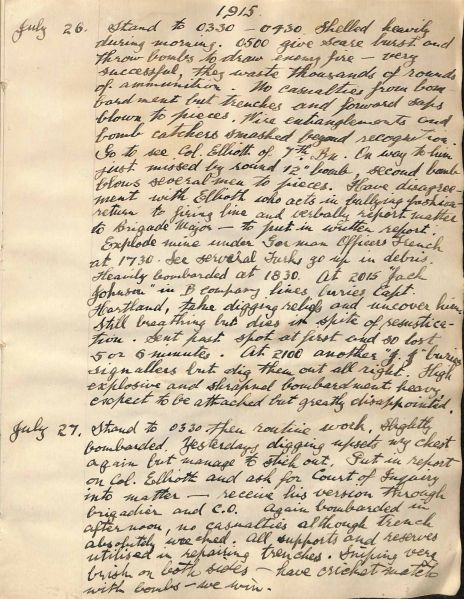 1915.
July 26. Stand to 0330 - 0430. Shelled heavily
during morning. 0500 give scare burst and
throw bombs to draw enemy fire - very
successful, they waste thousands of rounds
of ammunition. No casualties from bom-
bardment but trenches and forward saps
blown to pieces. Wire entanglements and
bomb catchers smashed beyond recognition.
Go to see Col. Elliott of 7th Bn. On way to him
just missed by round 12" bomb, second bomb
blows several men to pieces. Have disagree-
ment with Elliott who acts in bullying fashion
return to firing line and verbally report matter
to Brigade Major - to put in written report.
Explode mine under German Officers Trench
at 1730. See several Turks go up in debris.
Heavily bombarded at 1830. At 2015 "Jack
Johnson" in B company lines, buries Capt.
Hartland, take digging reliefs and uncover him.
Still breathing but dies in spite of resustica-
tion. Sent past spot at first and so lost
5 or 6 minutes. At 2100 another "J.J" buries
signallers but dig them out all right. High
explosive and shrapnel bombardment heavy
expect to be attacked but greatly disappointed.
July 27. Stand to 0330 then routine work. Slightly
bombarded. Yesterdays digging upsets my chest
again but manage to stick out. Put in report
on Col. Elliott and ask for Court of Inquiry
into matter - receive his version through
brigadier and C.O. Again bombarded in
afternoon, no casualties although trench
absolutely wrecked. All supports and reserves
utilised in repairing trenches. Sniping very
brisk on both sides - have cricket match
with bombs - we win.